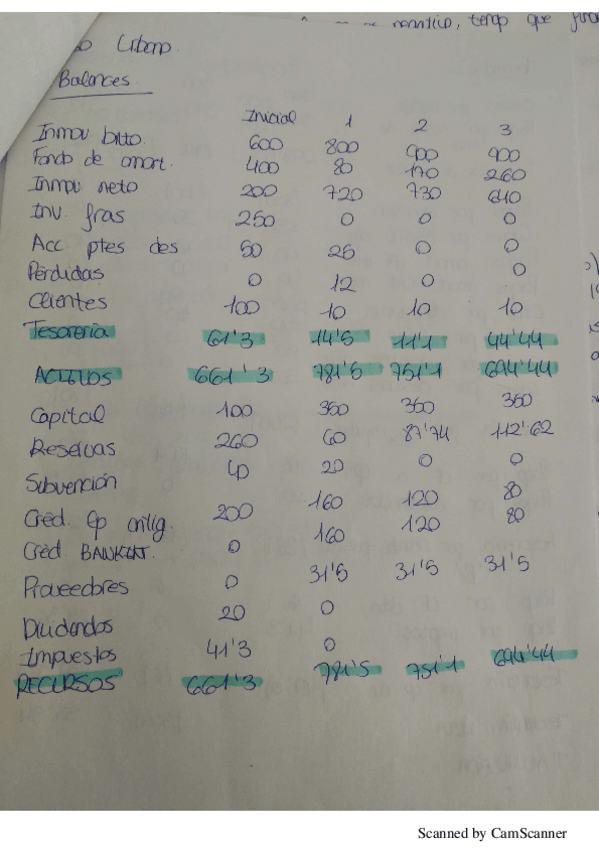 negativo, tengo que
Balances.
Inicial 1 2 3
Inmov bruto 600 800 900 900
Fondo de amort. 400 80 170 260
Inmov neto 200 720 730 640
Inv. fras 250 0 0 0
Acc ptes des 50 25 0 0
Pérdidas 0 12 0 0
Clientes 100 10 10 10
Tesorería 61'3 14'5 11'1 44'44
ACTIVOS 661'3 781'5 751'1 694'44
Capital 100 350 350 350
Reservas 260 60 87'74 112'62
Subvención 40 20 0 0
Créd. antig. 200 160 120 80
Créd BANKINT. 0 160 120 80
Proveedores 0 31'5 31'5 31'5
Dividendos 20 0
Impuestos 41'3 0
RECURSOS 661'3 781'5 751'1 694'44
Scanned by CamScanner